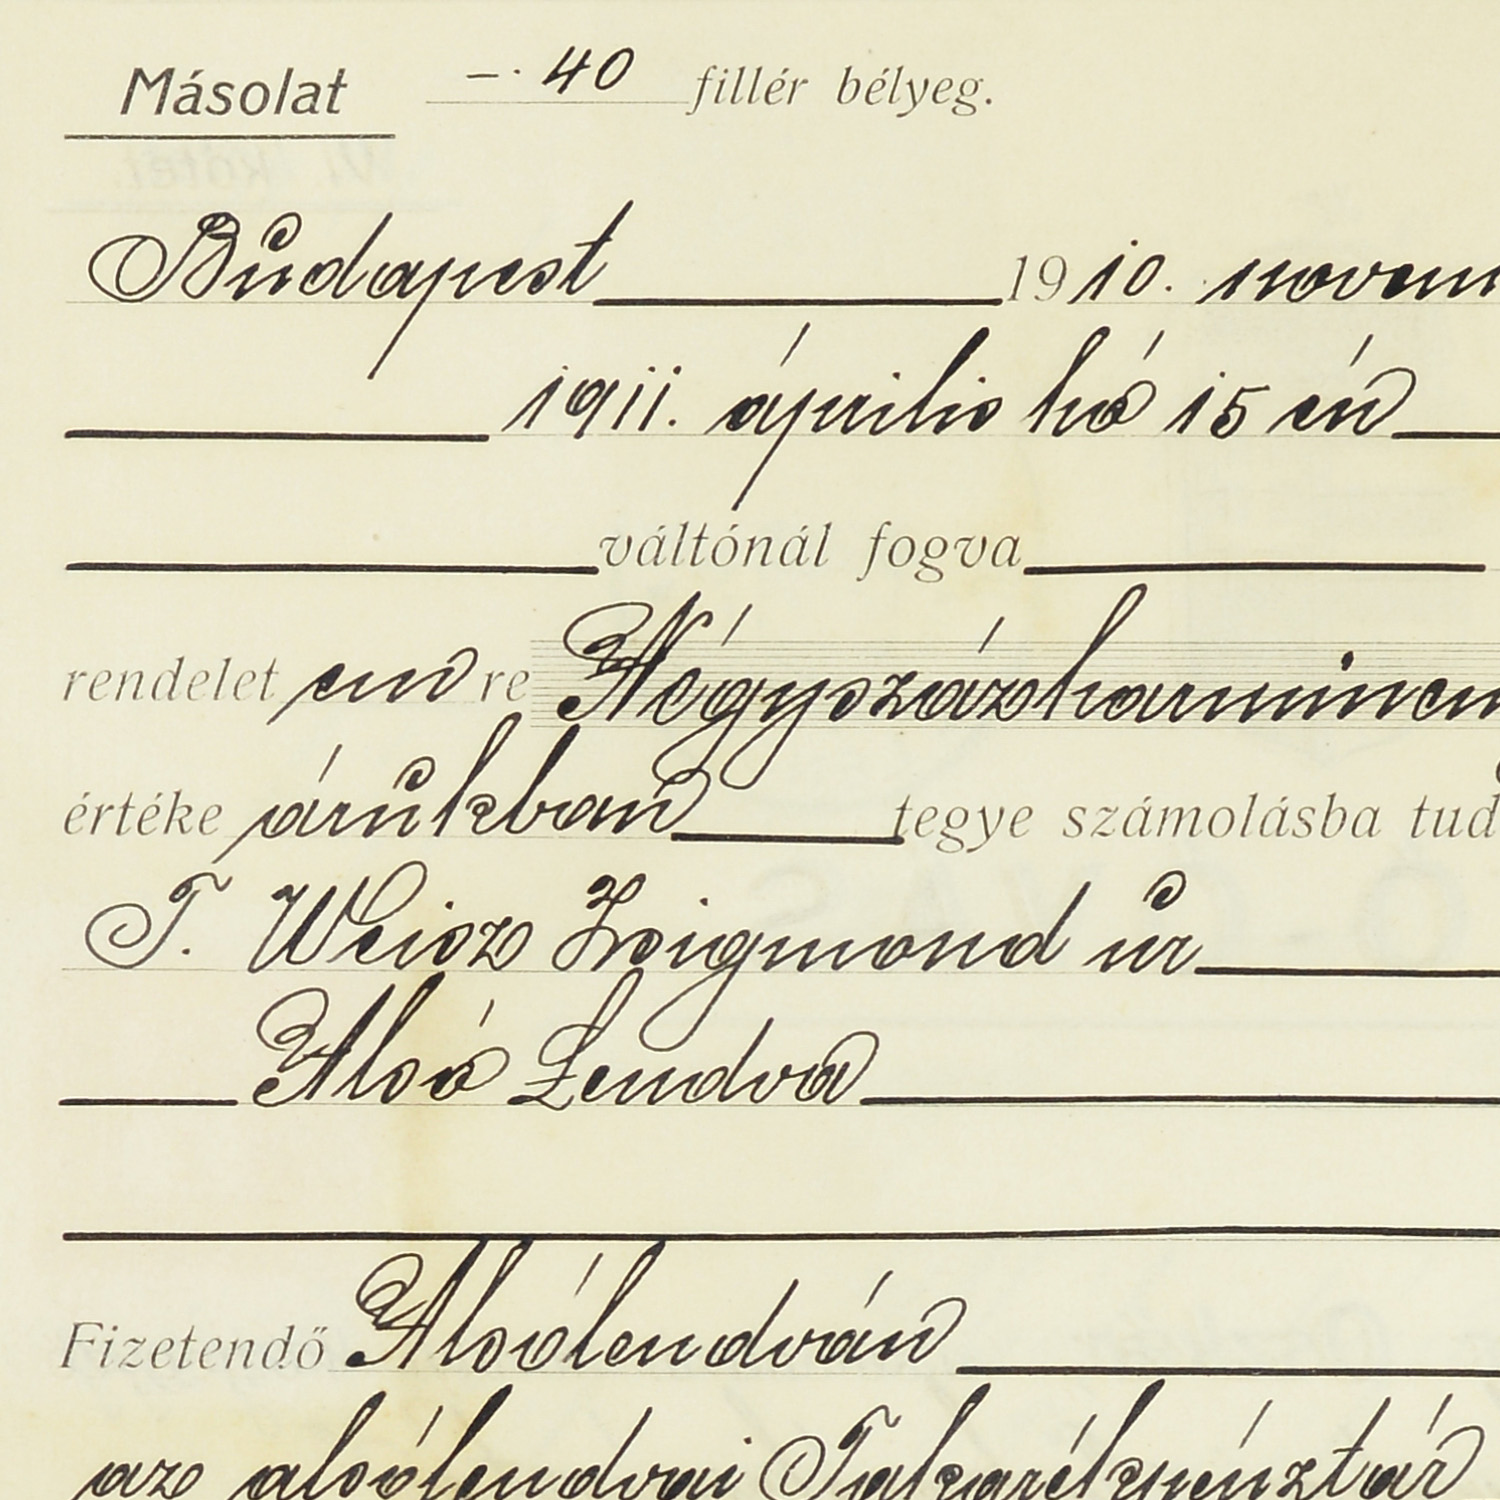 Másolat —. 40 fillér bélyeg.
Budapest 1910. novem
1911. április hó 15 én
váltónál fogva
rendelet en re Négyszázharmincn
értéke árukban tegye számolásba tud
T. Weisz Zsigmond úr
Alsó Lendva
Fizetendő Alsólendván
az alsólendvai Takarékpénztár